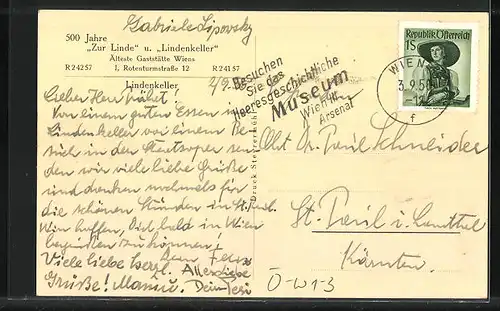 Gabriele Lipovsky
500 Jahre
"Zur Linde" u. "Lindenkeller"
Älteste Gaststätte Wiens
R 24257 I, Rotenturmstraße 12 R 24157
Lindenkeller
2/9.
Lieber Herr
Von einem guten Essen im
Lindenkeller vor einem Be-
such in der Staatsoper sen-
den wir viele liebe Grüße
und denken nochmals für
die schönen Stunden in St. Paul.
Wir hoffen, Dich bald in Wien
begrüßen zu können,
Viele liebe Dein
Grüße! Alles Liebe
Besuchen
Sie das
Heeresgeschichtliche
Museum
Wien III
Arsenal
Republik Österreich
1S
WIEN
3.9.50
f
Paul Schneider
St. Paul i. Lavanttal
Kärnten.
Ö-W1-3